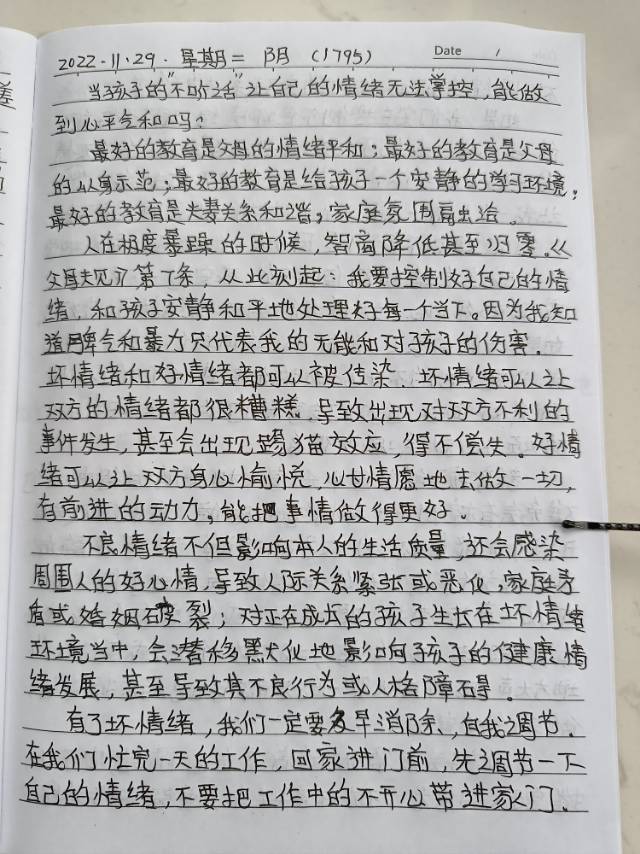 2022.11.29. 星期二 阴 (1795)
Date /
当孩子的"不听话"让自己的情绪无法掌控,能做
到心平气和吗?
最好的教育是父母的情绪平和;最好的教育是父母
的以身示范;最好的教育是给孩子一个安静的学习环境;
最好的教育是夫妻关系和谐,家庭氛围融洽。
人在极度暴躁的时候,智商降低甚至归零。《
父母规》第7条,从此刻起:我要控制好自己的情
绪,和孩子安静和平地处理好每一个当下。因为我知
道脾气和暴力只代表我的无能和对孩子的伤害。
坏情绪和好情绪都可以被传染,坏情绪可以让
双方的情绪都很糟糕,导致出现对双方不利的
事件发生,甚至会出现踢猫效应,得不偿失。好情
绪可以让双方身心愉悦,心甘情愿地去做一切,
有前进的动力,能把事情做得更好。
不良情绪不但影响本人的生活质量,还会感染
周围人的好心情,导致人际关系紧张或恶化,家庭矛
盾或婚姻破裂;对正在成长的孩子生长在坏情绪
环境当中,会潜移默化地影响孩子的健康情
绪发展,甚至导致其不良行为或人格障碍。
有了坏情绪,我们一定要及早消除,自我调节。
在我们忙完一天的工作,回家进门前,先调节一下
自己的情绪,不要把工作中的不开心带进家门。